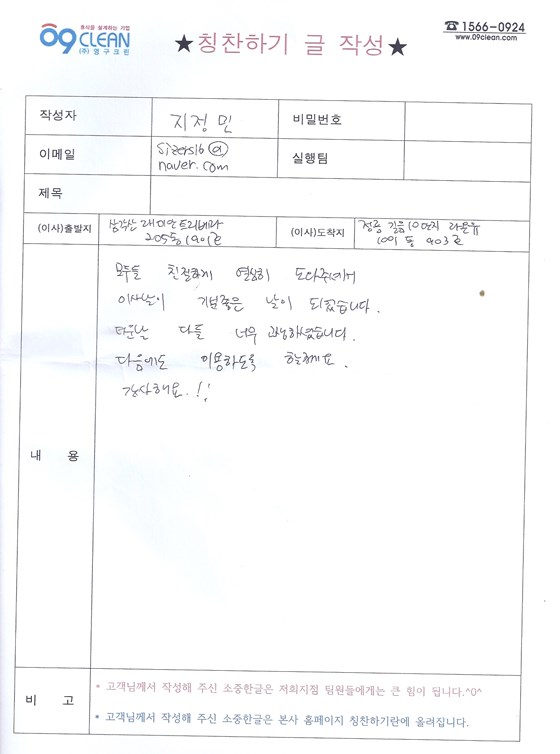 휴식을 설계하는 기업
09CLEAN
(주)영구크린
★칭찬하기 글 작성★
☎1566-0924
www.09clean.com
작성자 지정민 비밀번호
이메일
naver.com 실행팀
제목
(이사)출발지 삼각산 래미안트리베라
205동 1901호
(이사)도착지 길음 10단지 라온유
1001동 903호
내 용
모두들 친절하게 열심히 도와주셔서
이사날이 기분좋은 날이 되었습니다.
더운날 다들 너무 고생하셨습니다.
다음에도 이용하도록 할께요.
감사해요.!!
비 고
* 고객님께서 작성해 주신 소중한글은 저희지점 팀원들에게는 큰 힘이 됩니다.^0^
* 고객님께서 작성해 주신 소중한글은 본사 홈페이지 칭찬하기란에 올려집니다.